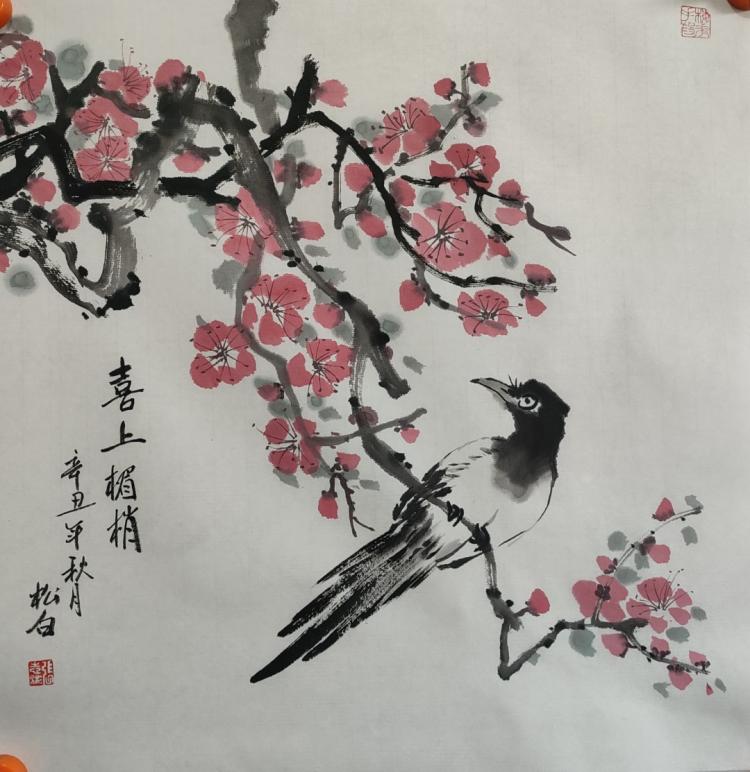 喜上楣梢
辛丑年秋月
松白